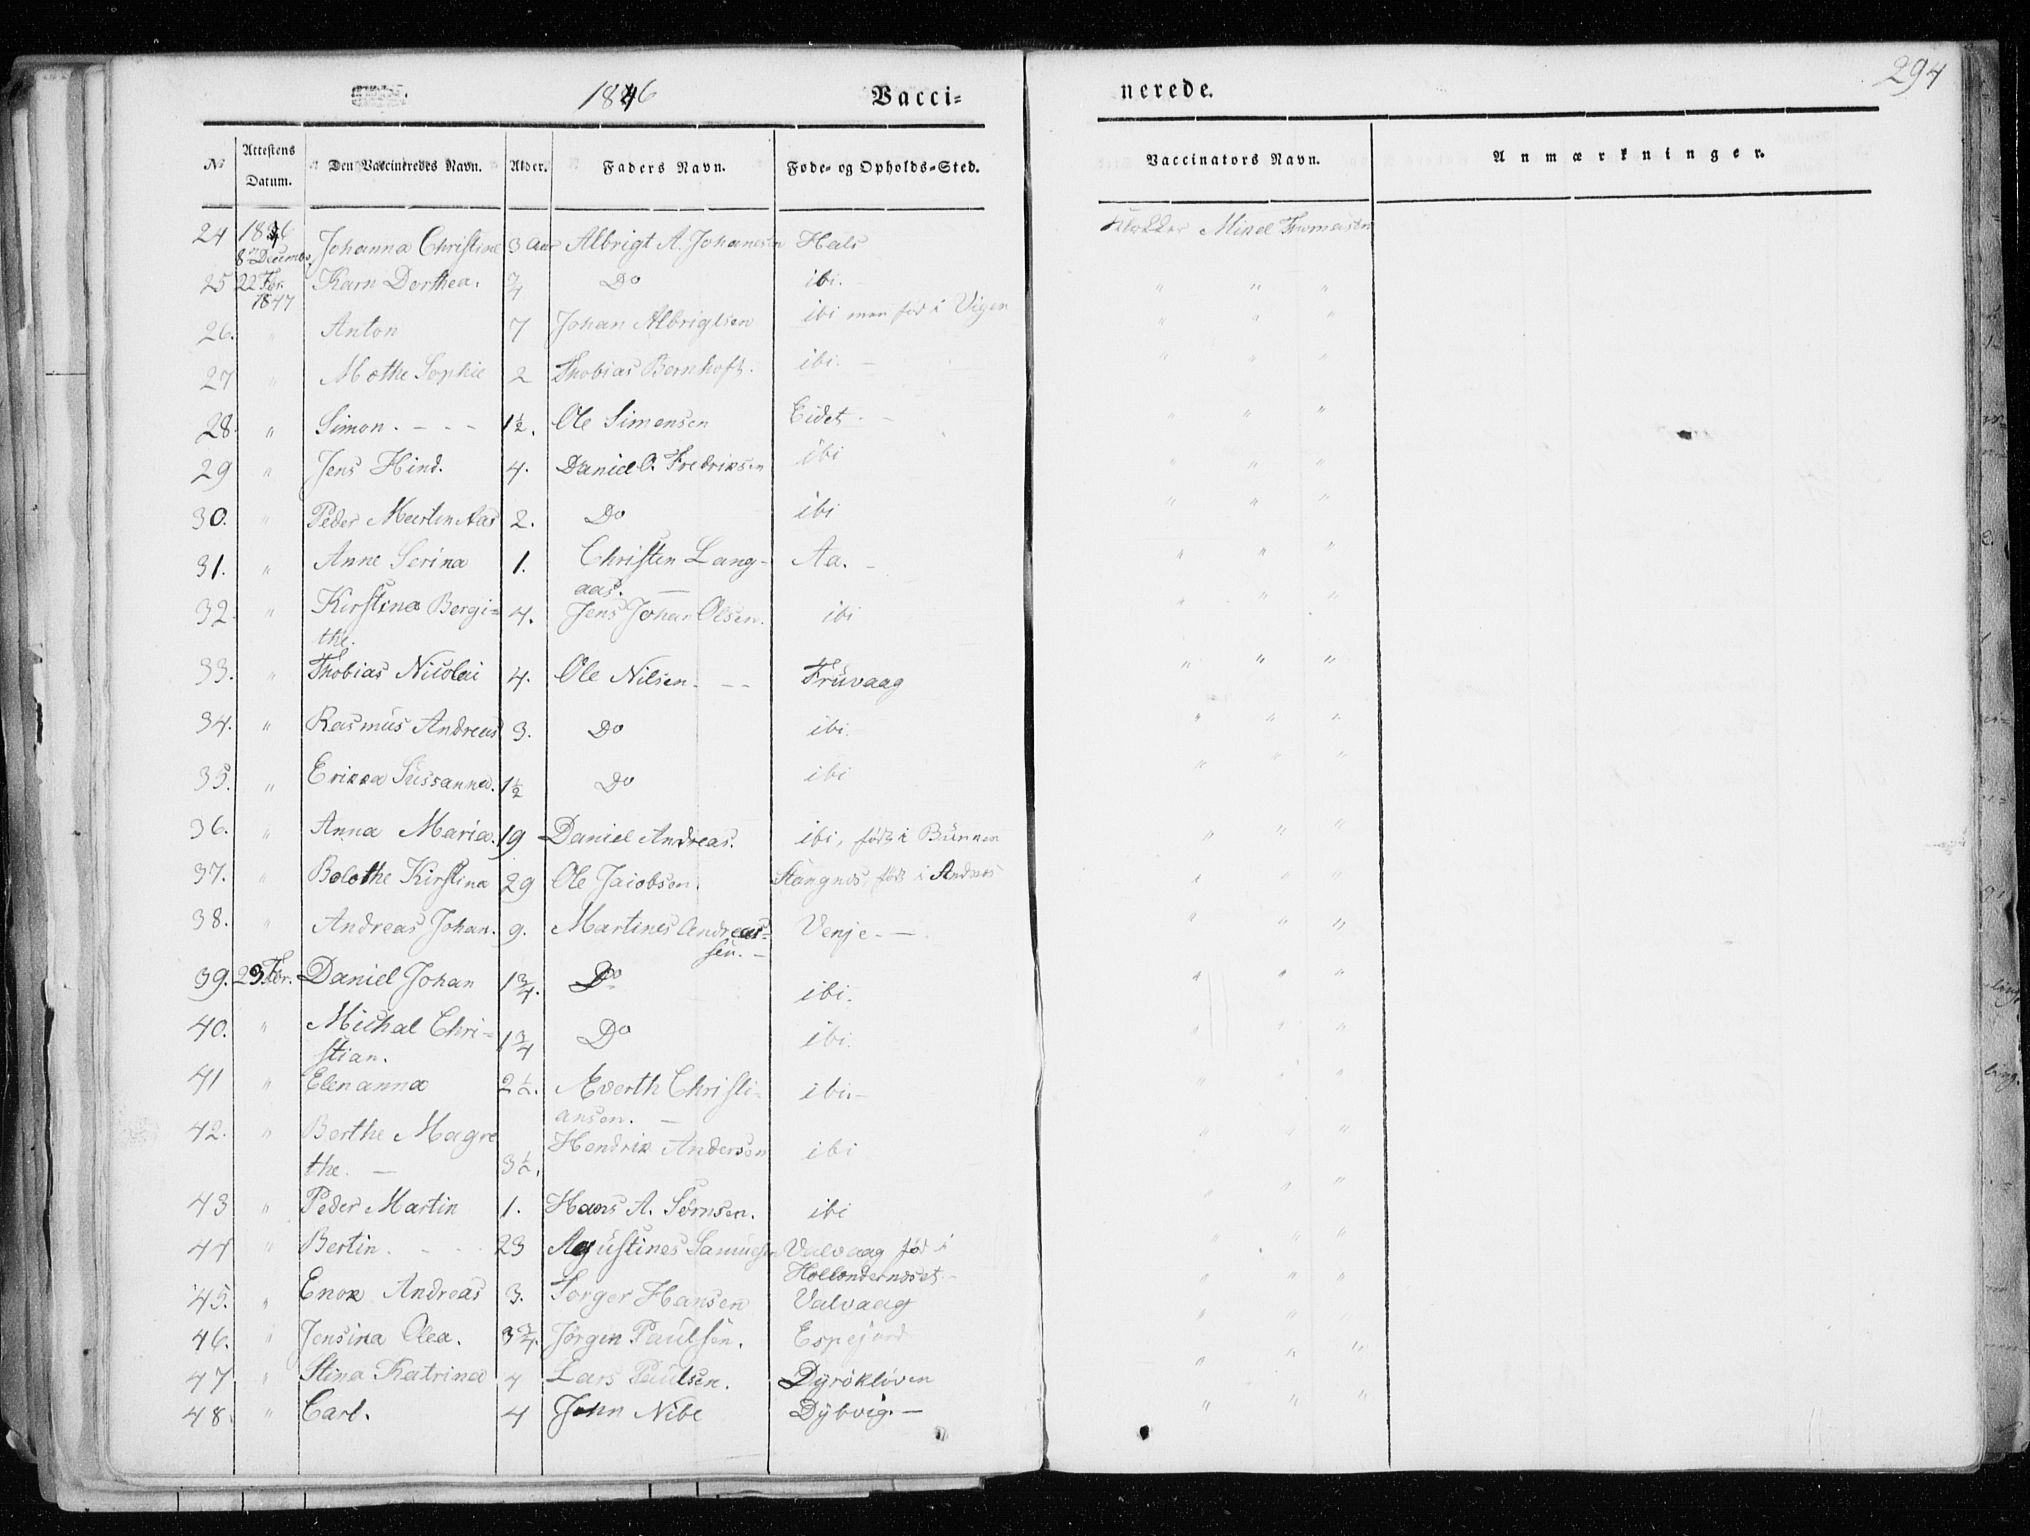 294
1846 Vacci= nerede.
No Attestens Datum. Den Vaccineredes Navn. Alder. Faders Navn. Føde- og Opholds-Sted. Vaccinators Navn. Anmærkninger.
24 1846 8de Decembr. Johanna Christine 3 Aar Albrigt A. Johanesen Hals Klokker Mikal Thomassen
25 22 Fbr. 1847 Karn Dorthea. 3/4 Do ibi. " " "
26. " Anton 7 Johan Albrigtsen ibi men fød i Vigen " " "
27 " Methe Sophie 2 Thobias Bernhoft. ibi. — " " "
28. " Simon. - - - 1½. Ole Simonsen Eidet - " " "
29 " Jens Hind. 4. Daniel O. Fredriksen ibi " " "
30. " Peder Martin Aas 2. Do ibi " " "
31. " Anne Serina 1. Christen Lang- Aa. - " " "
aas. —
32. " Kirstina Bergi= 4. Jens Johan Olsen. ibi " " "
the.
33. " Thobias Nicolai 4. Ole Nilsen. - - Fruvaag " " "
34. " Rasmus Andreas 3. Do ibi. " " "
35. " Erikka Sussanna. 1½ Do ibi " " "
36. " Anna Maria. 19 Daniel Andreas. ibi, født i " " "
37. " Bolethe Kirstina 29 Ole Jacobsen. Stangnes, født i " " "
38. " Andreas Johan. 9. Martines Andreas= Venje. — " " "
sen. —
39. 23 Fbr. Daniel Johan 1¾. Do ibi. " " "
40. " Michal Chri= 1¾ Do ibi. " " "
stian.
41 " Elen anna 2½. Everth Christi- ibi.- " " "
ansen. —
42. " Berthe Magre Hendrik Andersen ibi " " "
the. — 3½.
43 " Peder Martin 1. Hans A. Sørnsen. ibi " " "
44 " Bertin. - - - 23 Agustines Samuelsen Valvaag fød i " " "
Hollendernæset. -
45. " Enok Andreas 3. Torger Hansen Valvaag " " "
46. " Jensina Olea. 3¾. Jørgen Paulsen. Espejord " " "
47 " Stina Katrina 4 Lars Paulsen. Dyrøkløven " " "
48. " Carl. 4 John Nibe Dybvig. — " " "